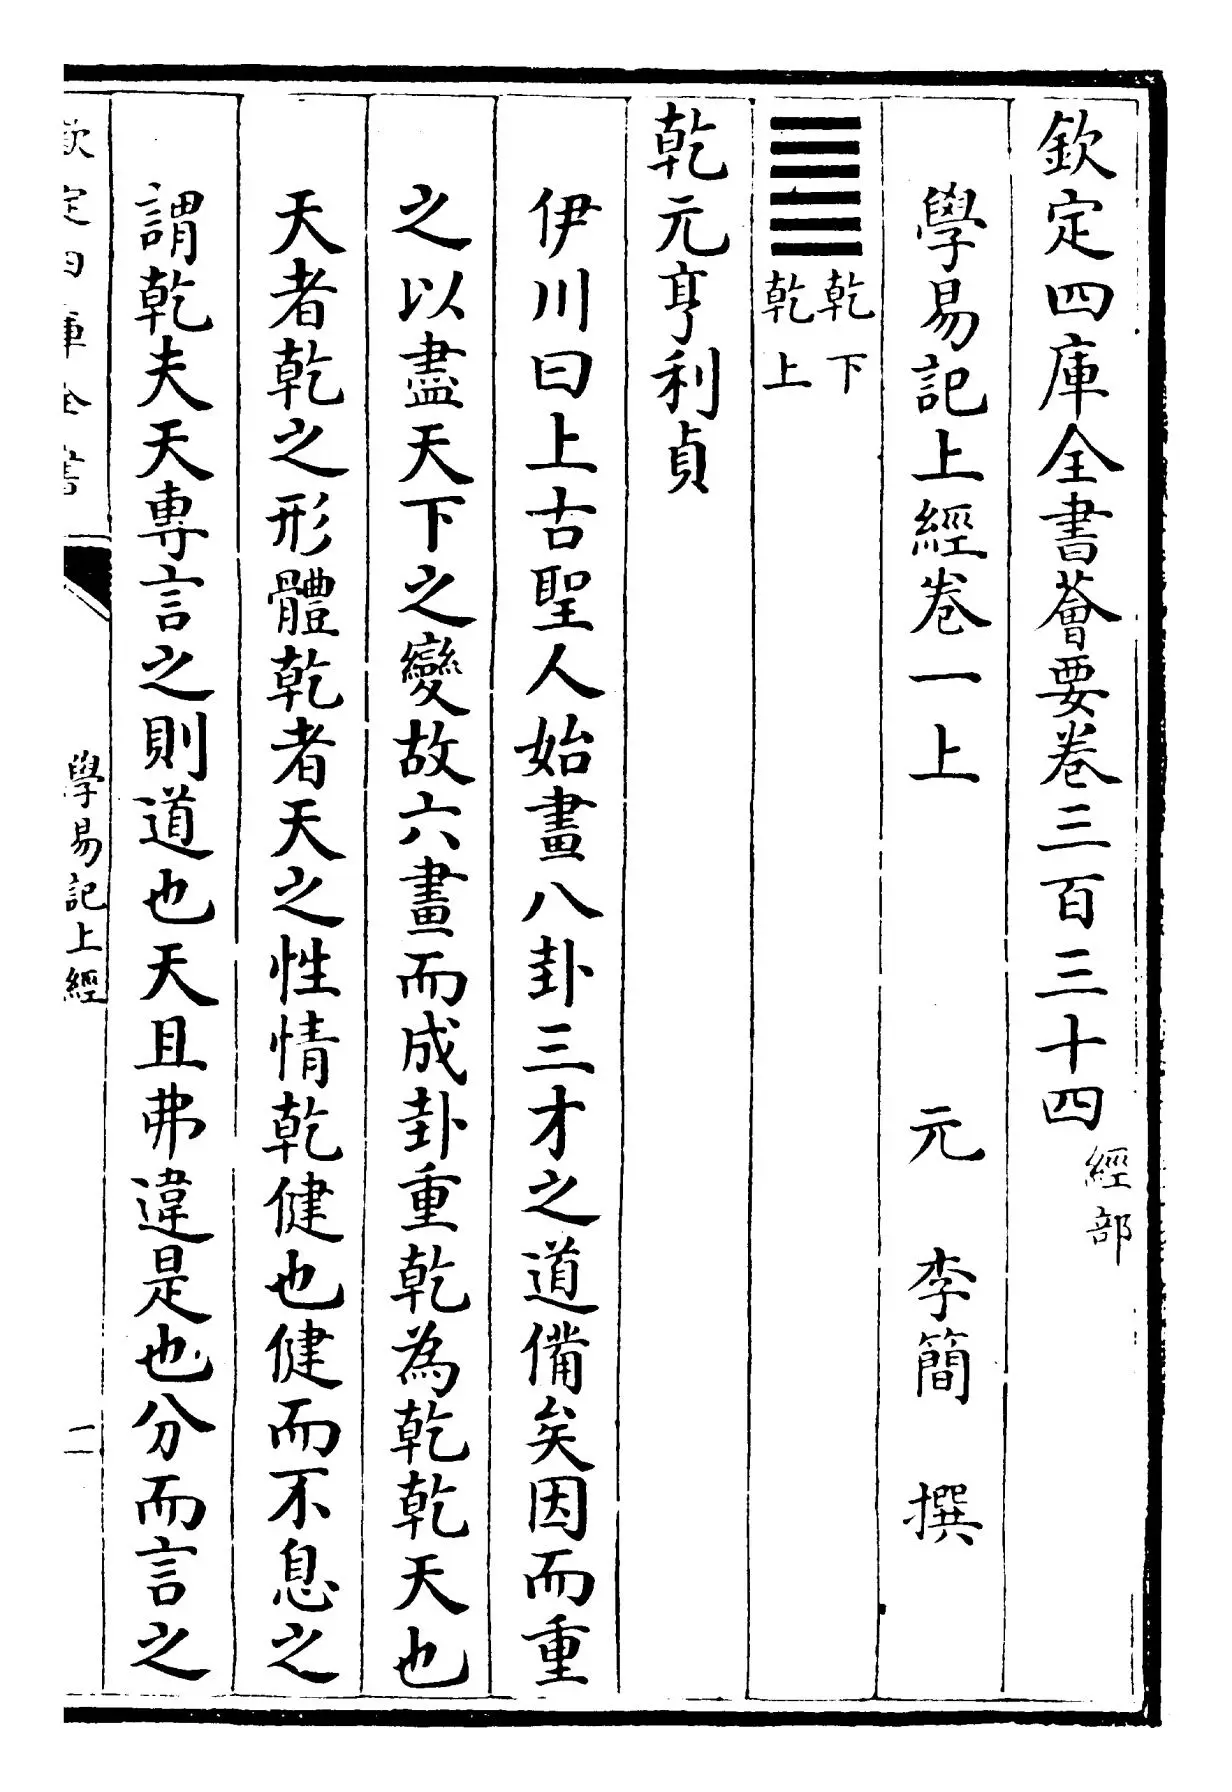 欽定四庫全書薈要卷三百三十四經部
學易記上經卷一上 元 李簡 撰
乾下
乾上
乾元亨利貞
伊川曰上古聖人始畫八卦三才之道備矣因而重
之以盡天下之變故六畫而成卦重乾為乾乾天也
天者乾之形體乾者天之性情乾健也健而不息之
謂乾夫天專言之則道也天且弗違是也分而言之
欽定四庫全書
學易記上經
一